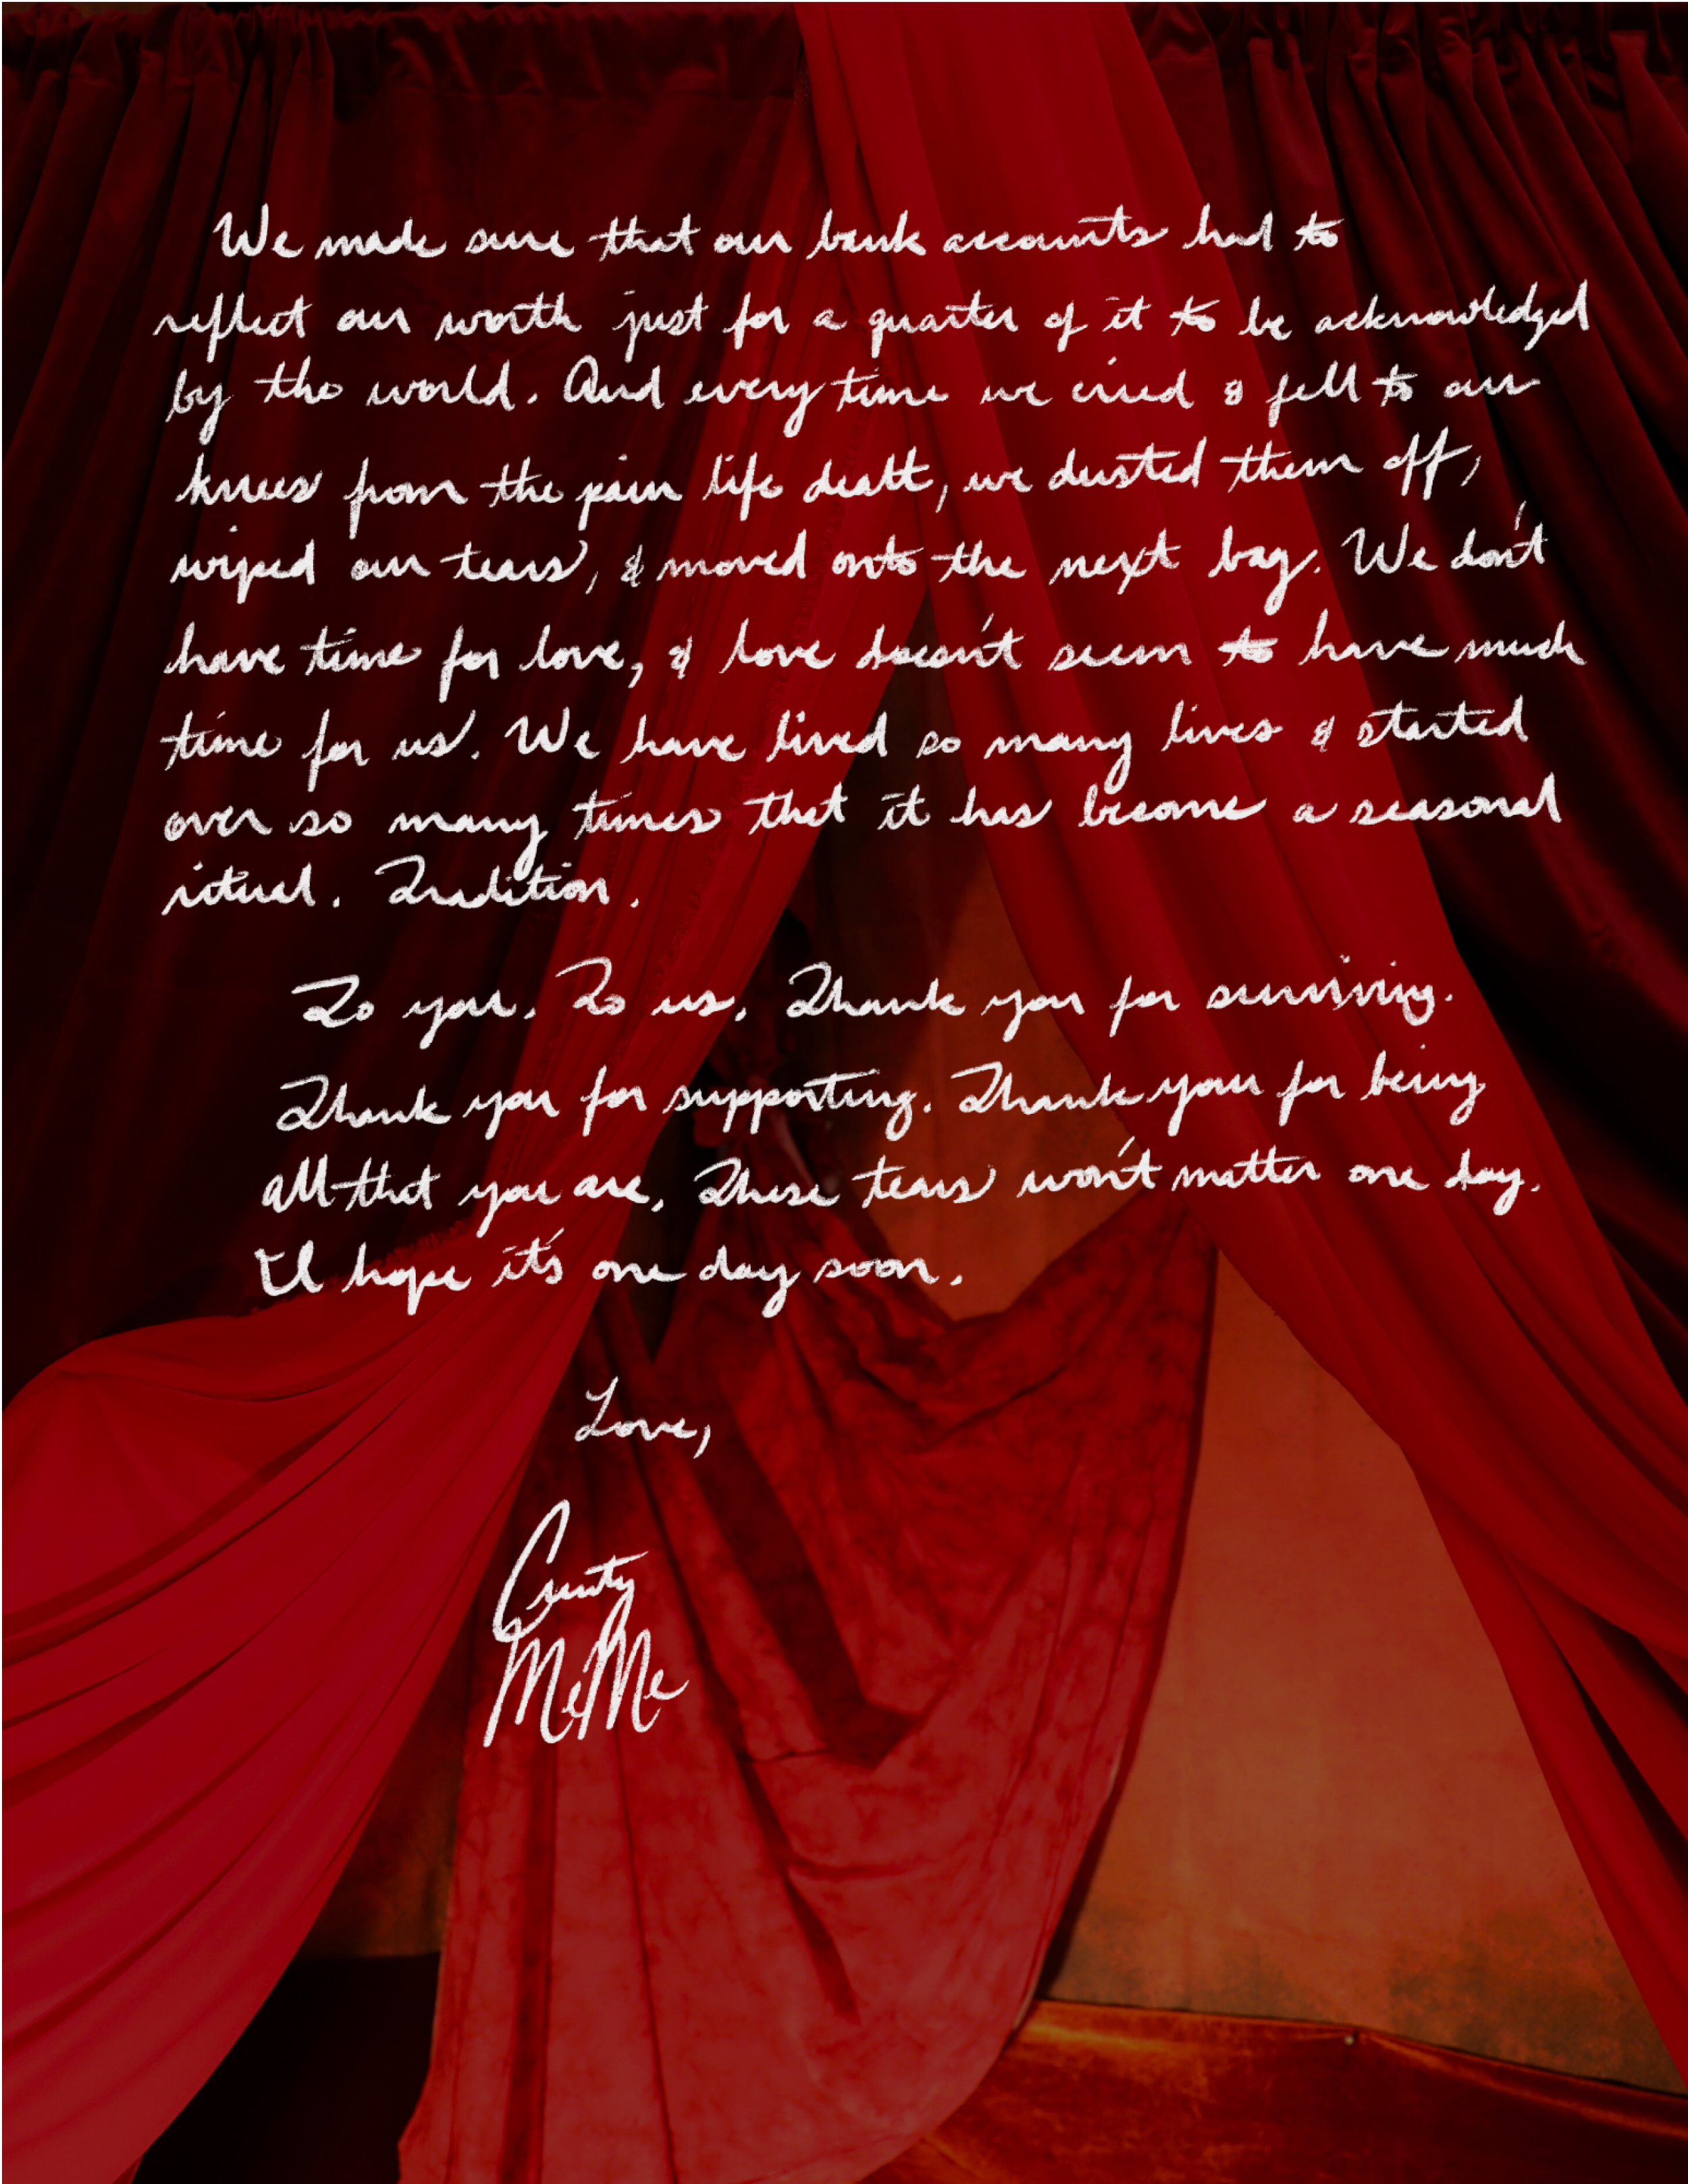 We made sure that our bank accounts had to
reflect our worth just for a quarter of it to be acknowledged
by the world. And every time we cried & fell to our
knees from the pain life dealt, we dusted them off,
wiped our tears, & moved onto the next bag. We don't
have time for love, & love doesn't seem to have much
time for us. We have lived so many lives & started
over so many times that it has become a seasonal
ritual. Tradition.
To you. To us. Thank you for surviving.
Thank you for supporting. Thank you for being
all that you are. These tears won't matter one day.
I'll hope it's one day soon.
Love,
MeMe